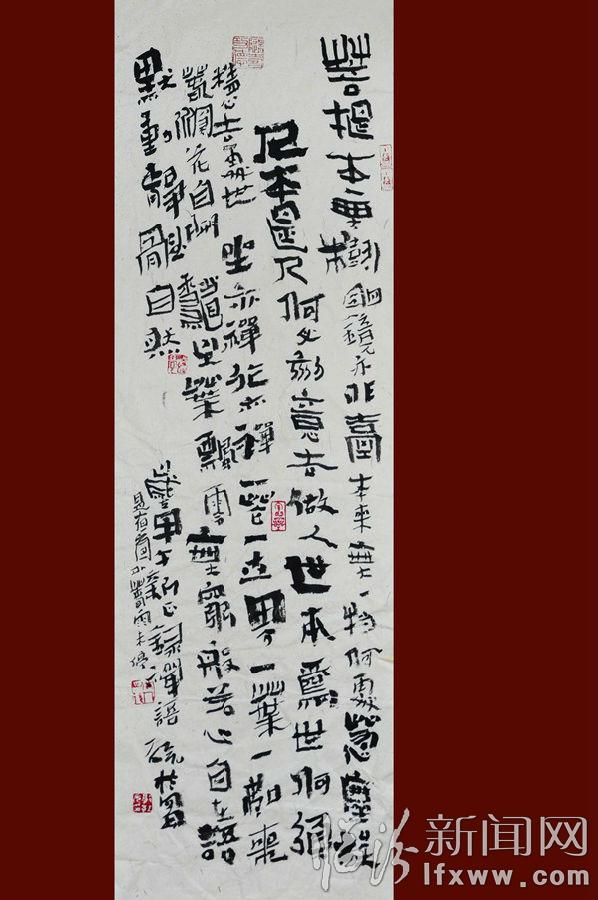 菩提本無樹明鏡亦非臺本來無一物何處惹塵埃
人本是人何必刻意去做人世本為世何須
精心去處世坐亦禪行亦禪一花一世界一葉一如來
春來花自青秋至葉飄零無窮般若心自在語
默動靜體自然
歲甲午錄禪語
雨未停
临汾新闻网
lfxww.com